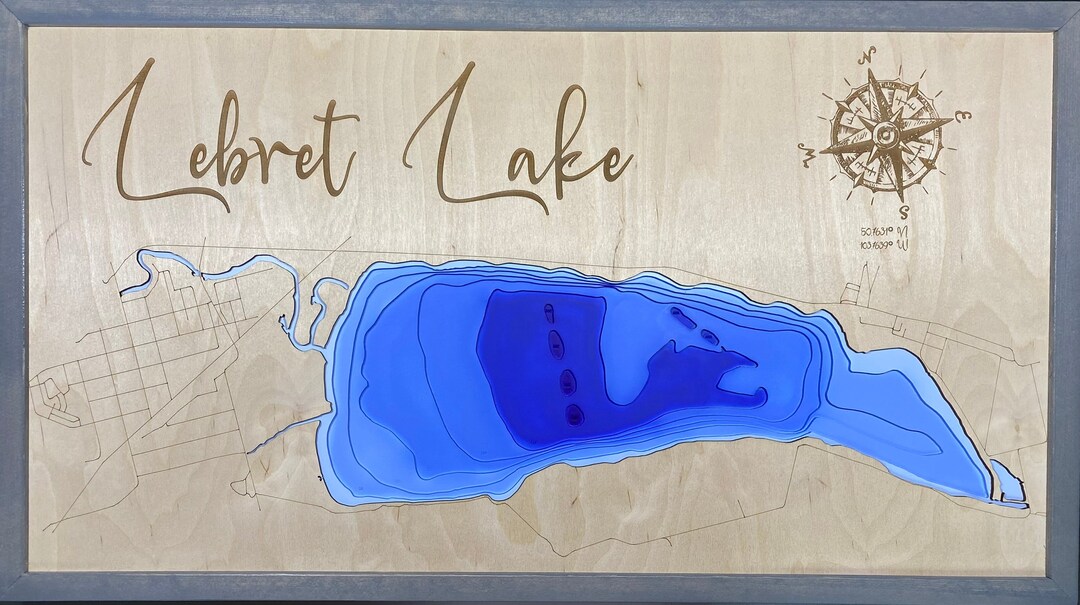 Lebret Lake
N
E
W
S
50.7631° N
103.7639° W